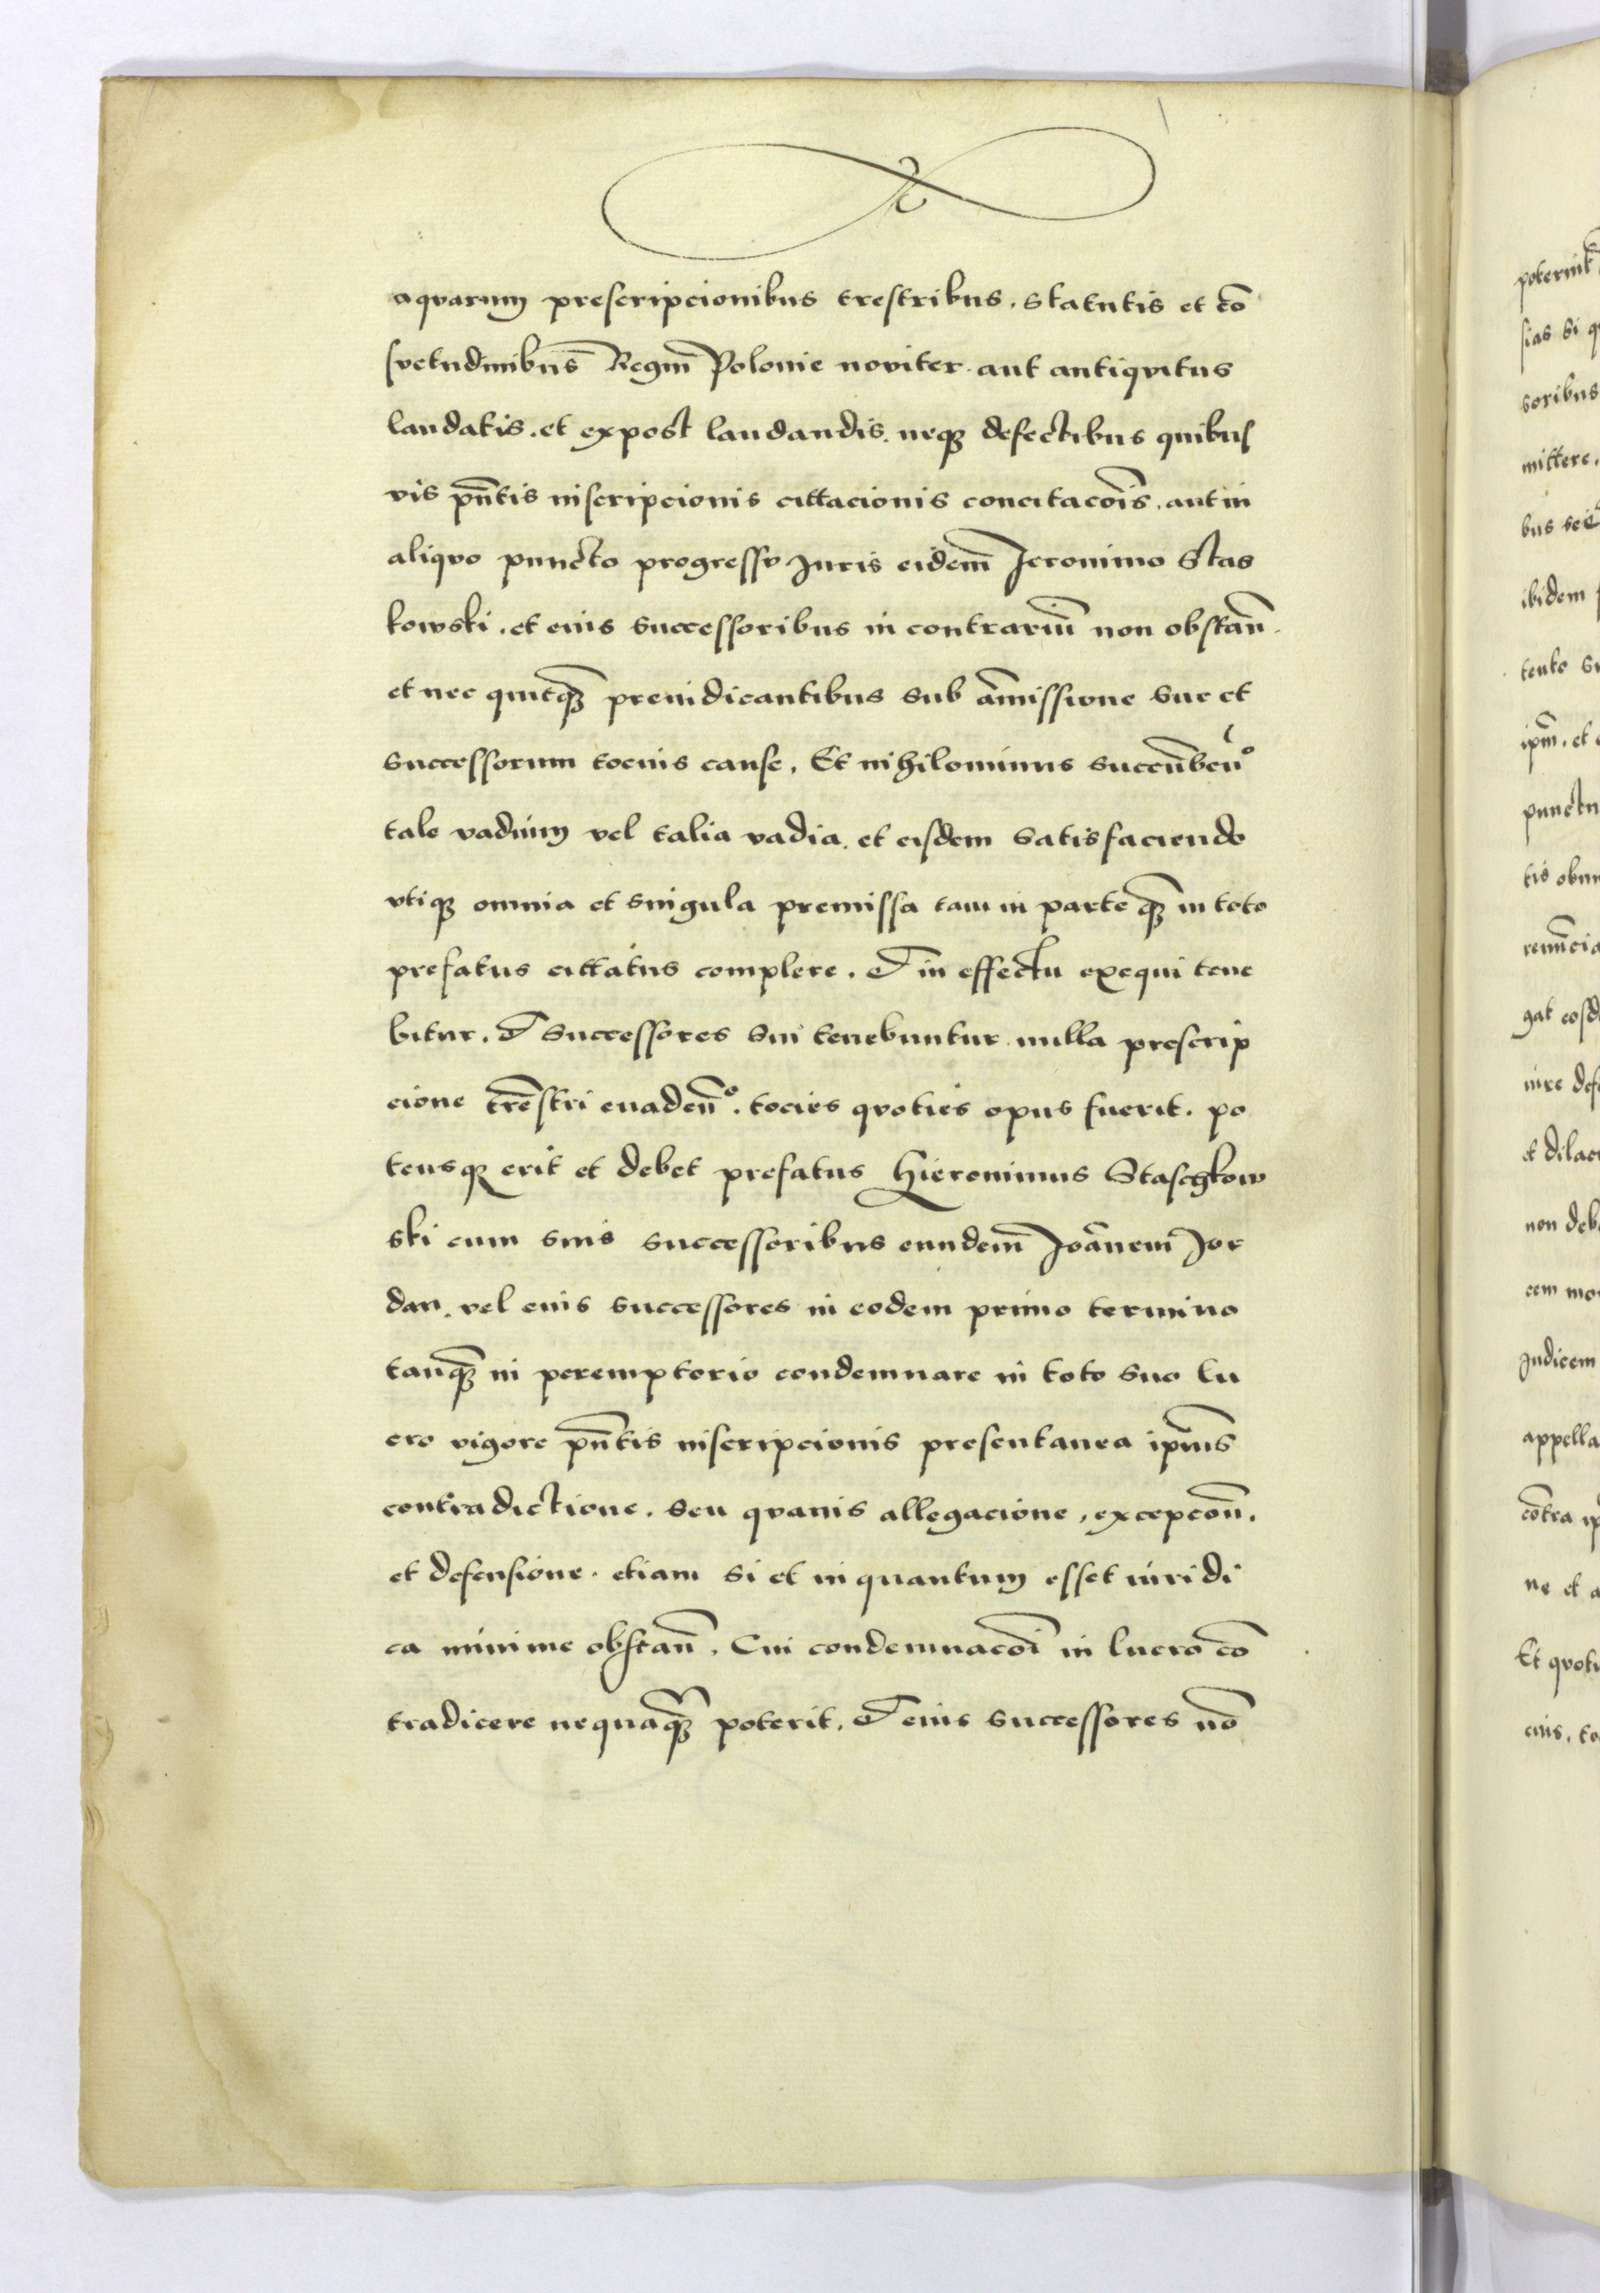 aquarum prescripcionibus trestribus. statutis et cō
suetudinibus Regnī Polonie noviter aut antiquitus
laudatis. et expost laudandis. neq₃ defectibus quibus
vis pn̄tis inscripcionis cittacionis concitacōis. aut in
aliquo puncto progressu Juris eidem̄ Jeronimo Stas
kowski. et eius successoribus in contrariū non obstan̄.
et nec quitq₃ preiudicantibus sub āmissione sue et
successorum tocius cause. Et nihilominus succūben̄º
tale vadium vel talia vadia. et eisdem satisfaciendo
vtiq₃ omnia et singula premissa tam in parte q₃ in toto
prefatus cittatus complere. & in effectu exequi tene
bitur. & successores sui tenebuntur nulla prescrip
cione trēstri evaden̄º. tocies quoties opus fuerit. po
tensq₃ erit et debet prefatus Hieronimus Staschkow
ski cum suis successoribus eundem̄ Joānem Jor
dan. vel eius successores in eodem primo termino
tanq₃ in peremptorio condemnare in toto suo lu
cro vigore pn̄tis inscripcionis presentanea ipīus
contradictione. seu quavis allegacione, excepcōn̄.
et defensione. etiam si et inquantum esset iuridi
ca minime obstan̄. Cui condemnacōi in lucro cō
tradicere nequaq₃ poterit. & eius successores nō
poterint
sias si q
soribus
mittere.
bus
ibidem
tento
ipm̄. et
punctu
tis
gat eosd
iure def
et dilac
non deb
cem mo
Judicem
appella
cōtra ip
ne et a
Et quoti
cius. to